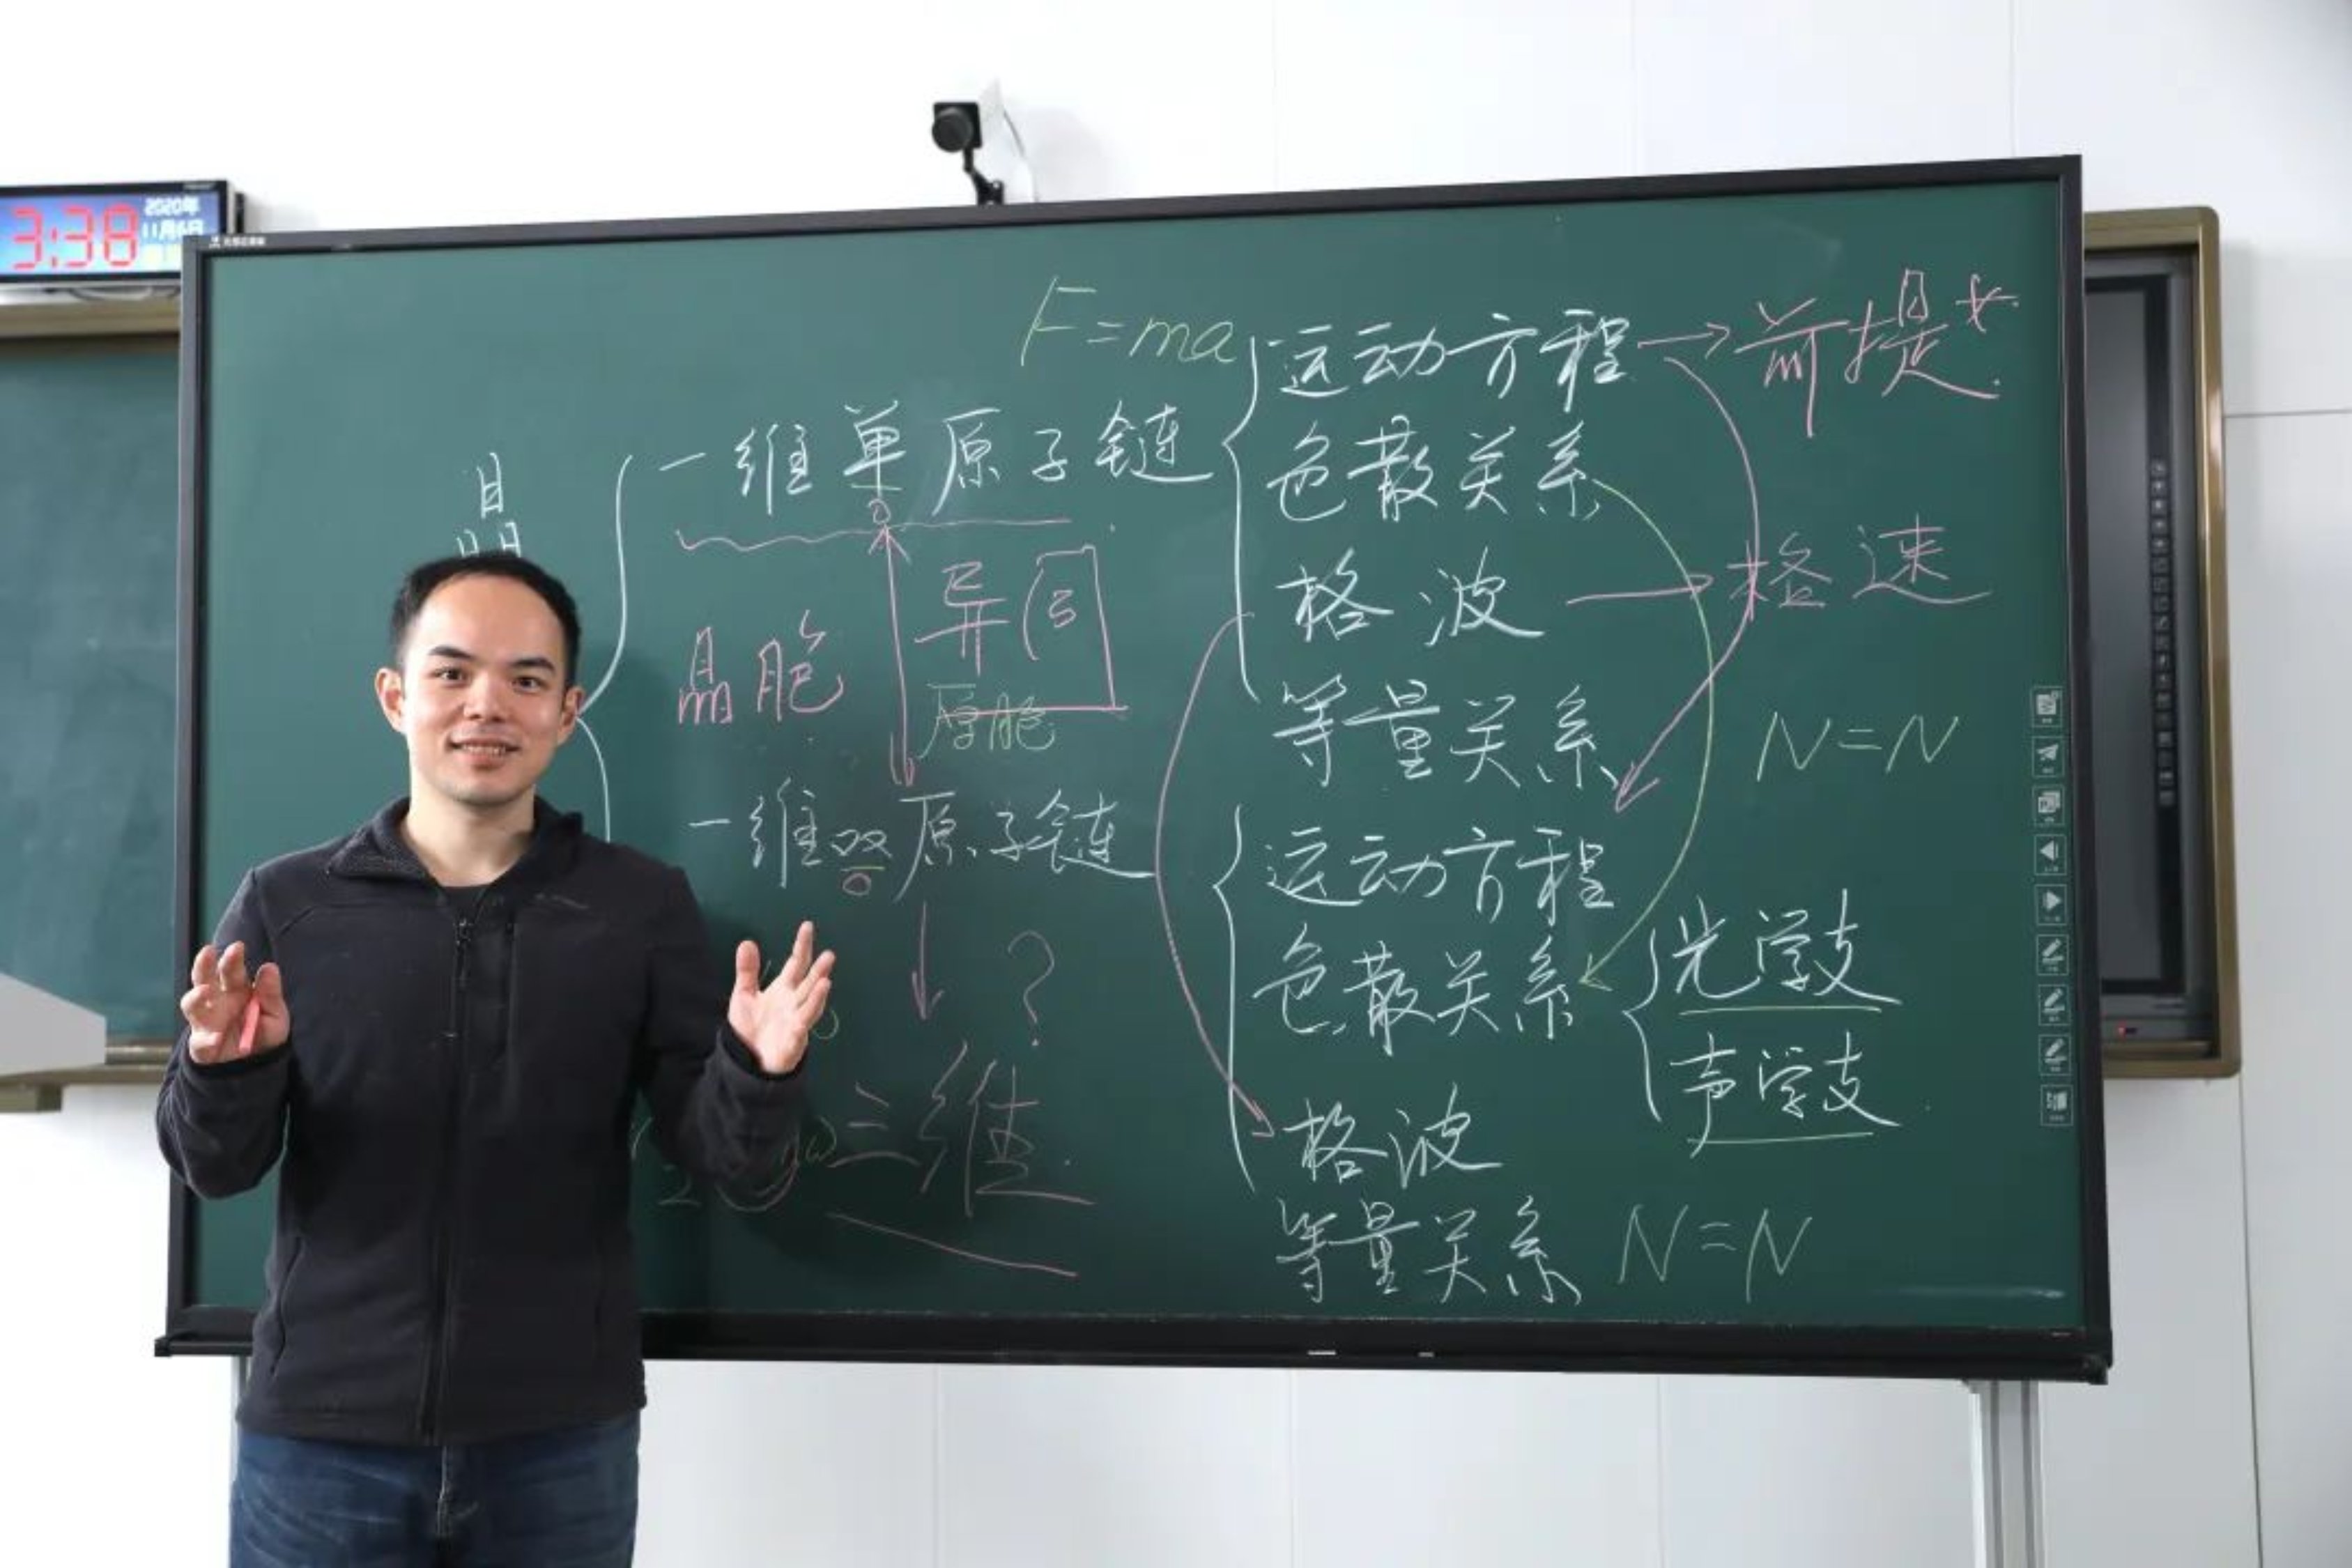 3:38
2020年
11月6日
F=ma
运动方程
前提
一维单原子链
色散关系
晶
格波
格速
异同
晶胞
原胞
等量关系
N=N
一维双原子链
运动方程
色散关系
光学支
声学支
?
三维
格波
等量关系
N=N